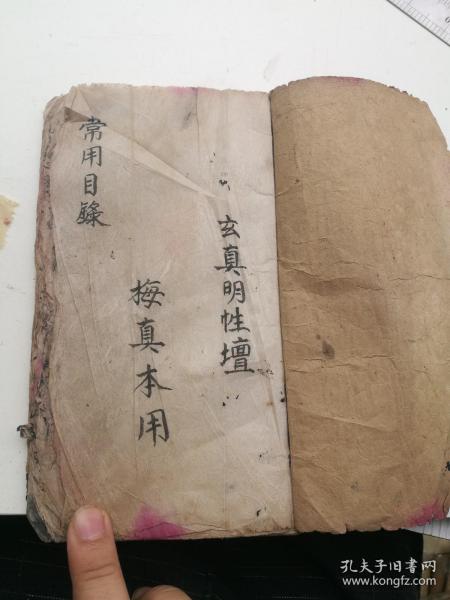 玄真明性壇
梅真本用
常用目錄
孔夫子旧书网
www.kongfz.com